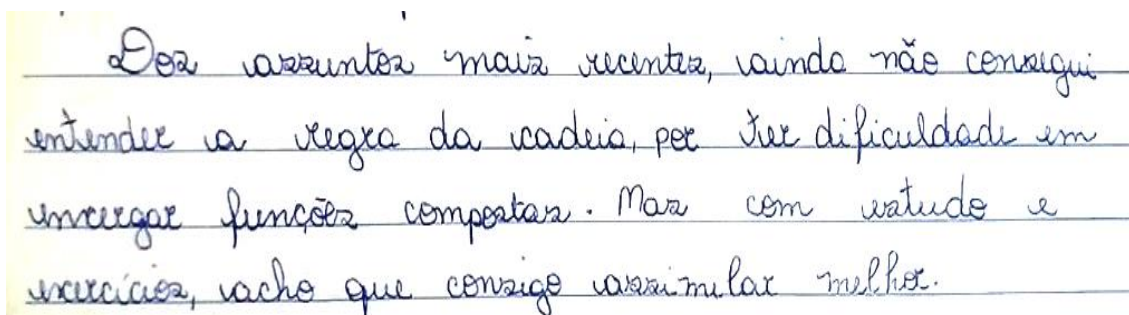 Dos assuntos mais recentes, ainda não consegui
entender a regra da cadeia, por ter dificuldade em
enxergar funções compostas. Mas com estudo e
exercícios, acho que consigo assimilar melhor.